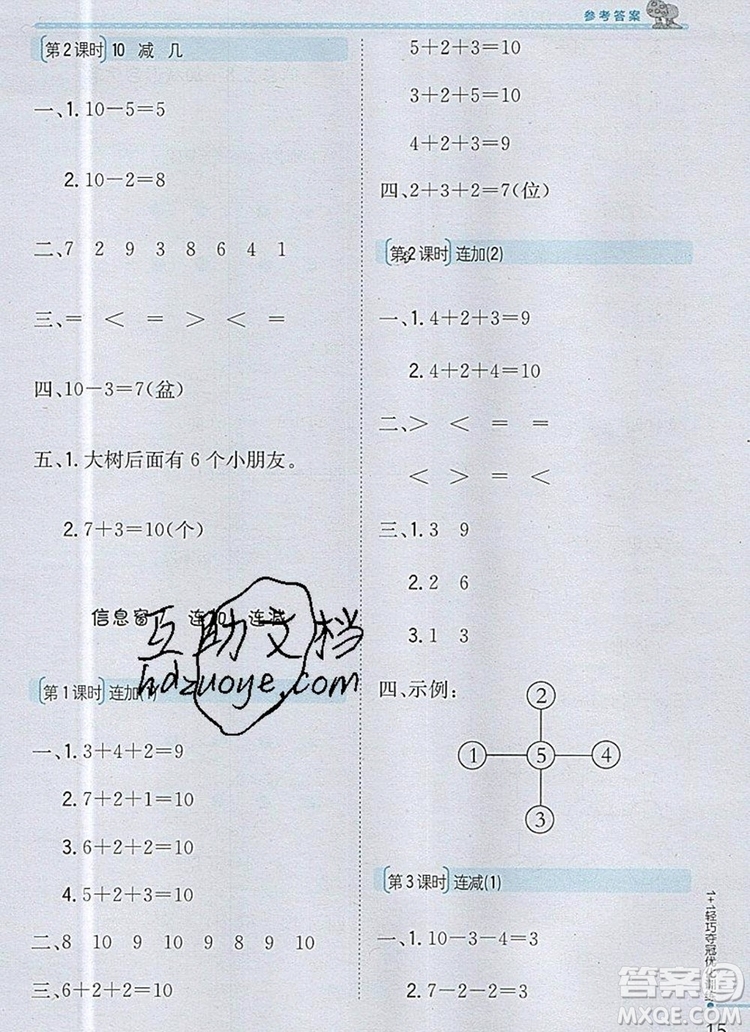 参考答案
第2课时 10 减 几
一、1. 10－5＝5
2. 10－2＝8
二、7 2 9 3 8 6 4 1
三、＝ ＜ ＝ ＞ ＜ ＝
四、10－3＝7(盆)
五、1. 大树后面有 6 个小朋友。
2. 7＋3＝10(个)
信息窗
连减
互助文档
hdzuoye.com
第1课时 连加(1)
一、1. 3＋4＋2＝9
2. 7＋2＋1＝10
3. 6＋2＋2＝10
4. 5＋2＋3＝10
二、8 10 9 10 9 8 9 10
三、6＋2＋2＝10
5＋2＋3＝10
3＋2＋5＝10
4＋2＋3＝9
四、2＋3＋2＝7(位)
第2课时 连加(2)
一、1. 4＋2＋3＝9
2. 4＋2＋4＝10
二、＞ ＜ ＝ ＝
＜ ＞ ＝ ＜
三、1. 3 9
2. 2 6
3. 1 3
四、示例：
②
① ⑤ ④
③
第3课时 连减(1)
一、1. 10－3－4＝3
2. 7－2－2＝3
1+1轻巧夺冠优化训练
15
答案圈
MXQE.COM